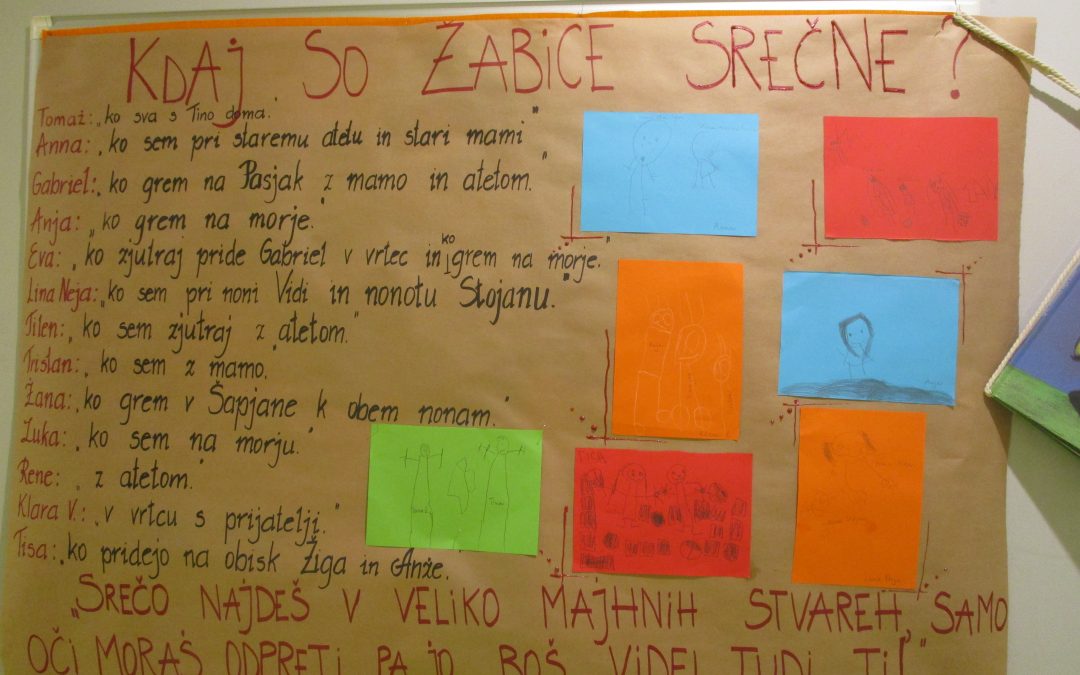 KDAJ SO ŽABICE SREČNE?
Tomaž: „ko sva s Tino doma."
Anna: „ko sem pri staremu atetu in stari mami"
Gabriel: „ko grem na Pasjak z mamo in atetom."
Anja: „ko grem na morje."
Eva: „ko zjutraj pride Gabriel v vrtec in ko grem na morje."
Lina Neja: „ko sem pri noni Vidi in nonotu Stojanu."
Tilen: „ko sem zjutraj z atetom."
Tristan: „ko sem z mamo."
Žana: „ko grem v Šapjane k obem nonam."
Luka: „ko sem na morju."
Rene: „z atetom."
Klara V.: „v vrtcu s prijatelji."
Tisa: „ko pridejo na obisk Žiga in Anže."
„SREČO NAJDEŠ V VELIKO MAJHNIH STVAREH, SAMO
OČI MORAŠ ODPRETI PA JO BOŠ VIDEL TUDI TI!"